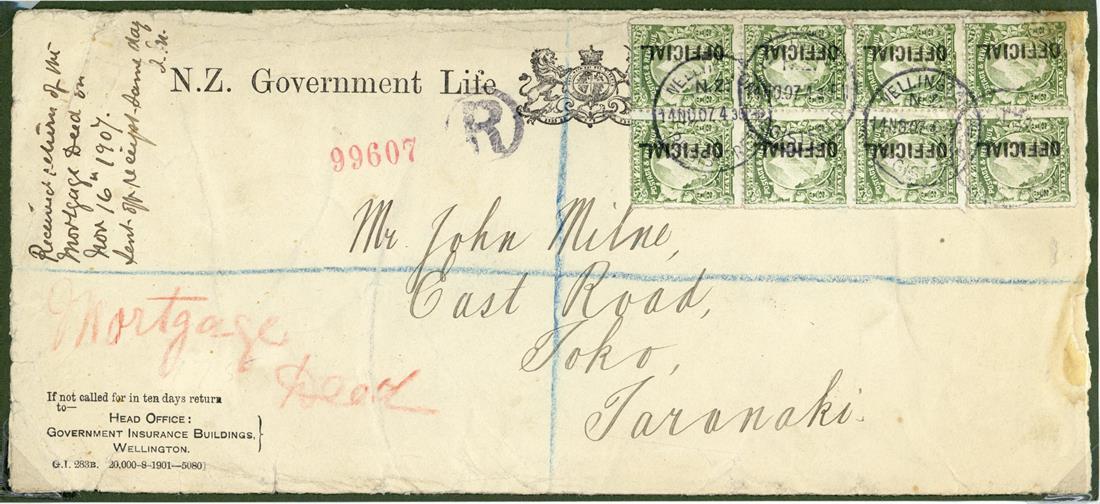 Received return of the
Mortgage Deed on
Nov 16th 1907.
Sent off receipt same day
N.Z. Government Life
R
99607
OFFICIAL OFFICIAL OFFICIAL OFFICIAL
OFFICIAL OFFICIAL OFFICIAL OFFICIAL
WELLINGTON
N.Z.
14NO.07 4
Mr John Milne,
East Road,
Toko,
Taranaki.
Mortgage
Deed
If not called for in ten days return
to—
HEAD OFFICE:
GOVERNMENT INSURANCE BUILDINGS,
WELLINGTON.
G.I. 283B. 20,000-8-1901—5080]